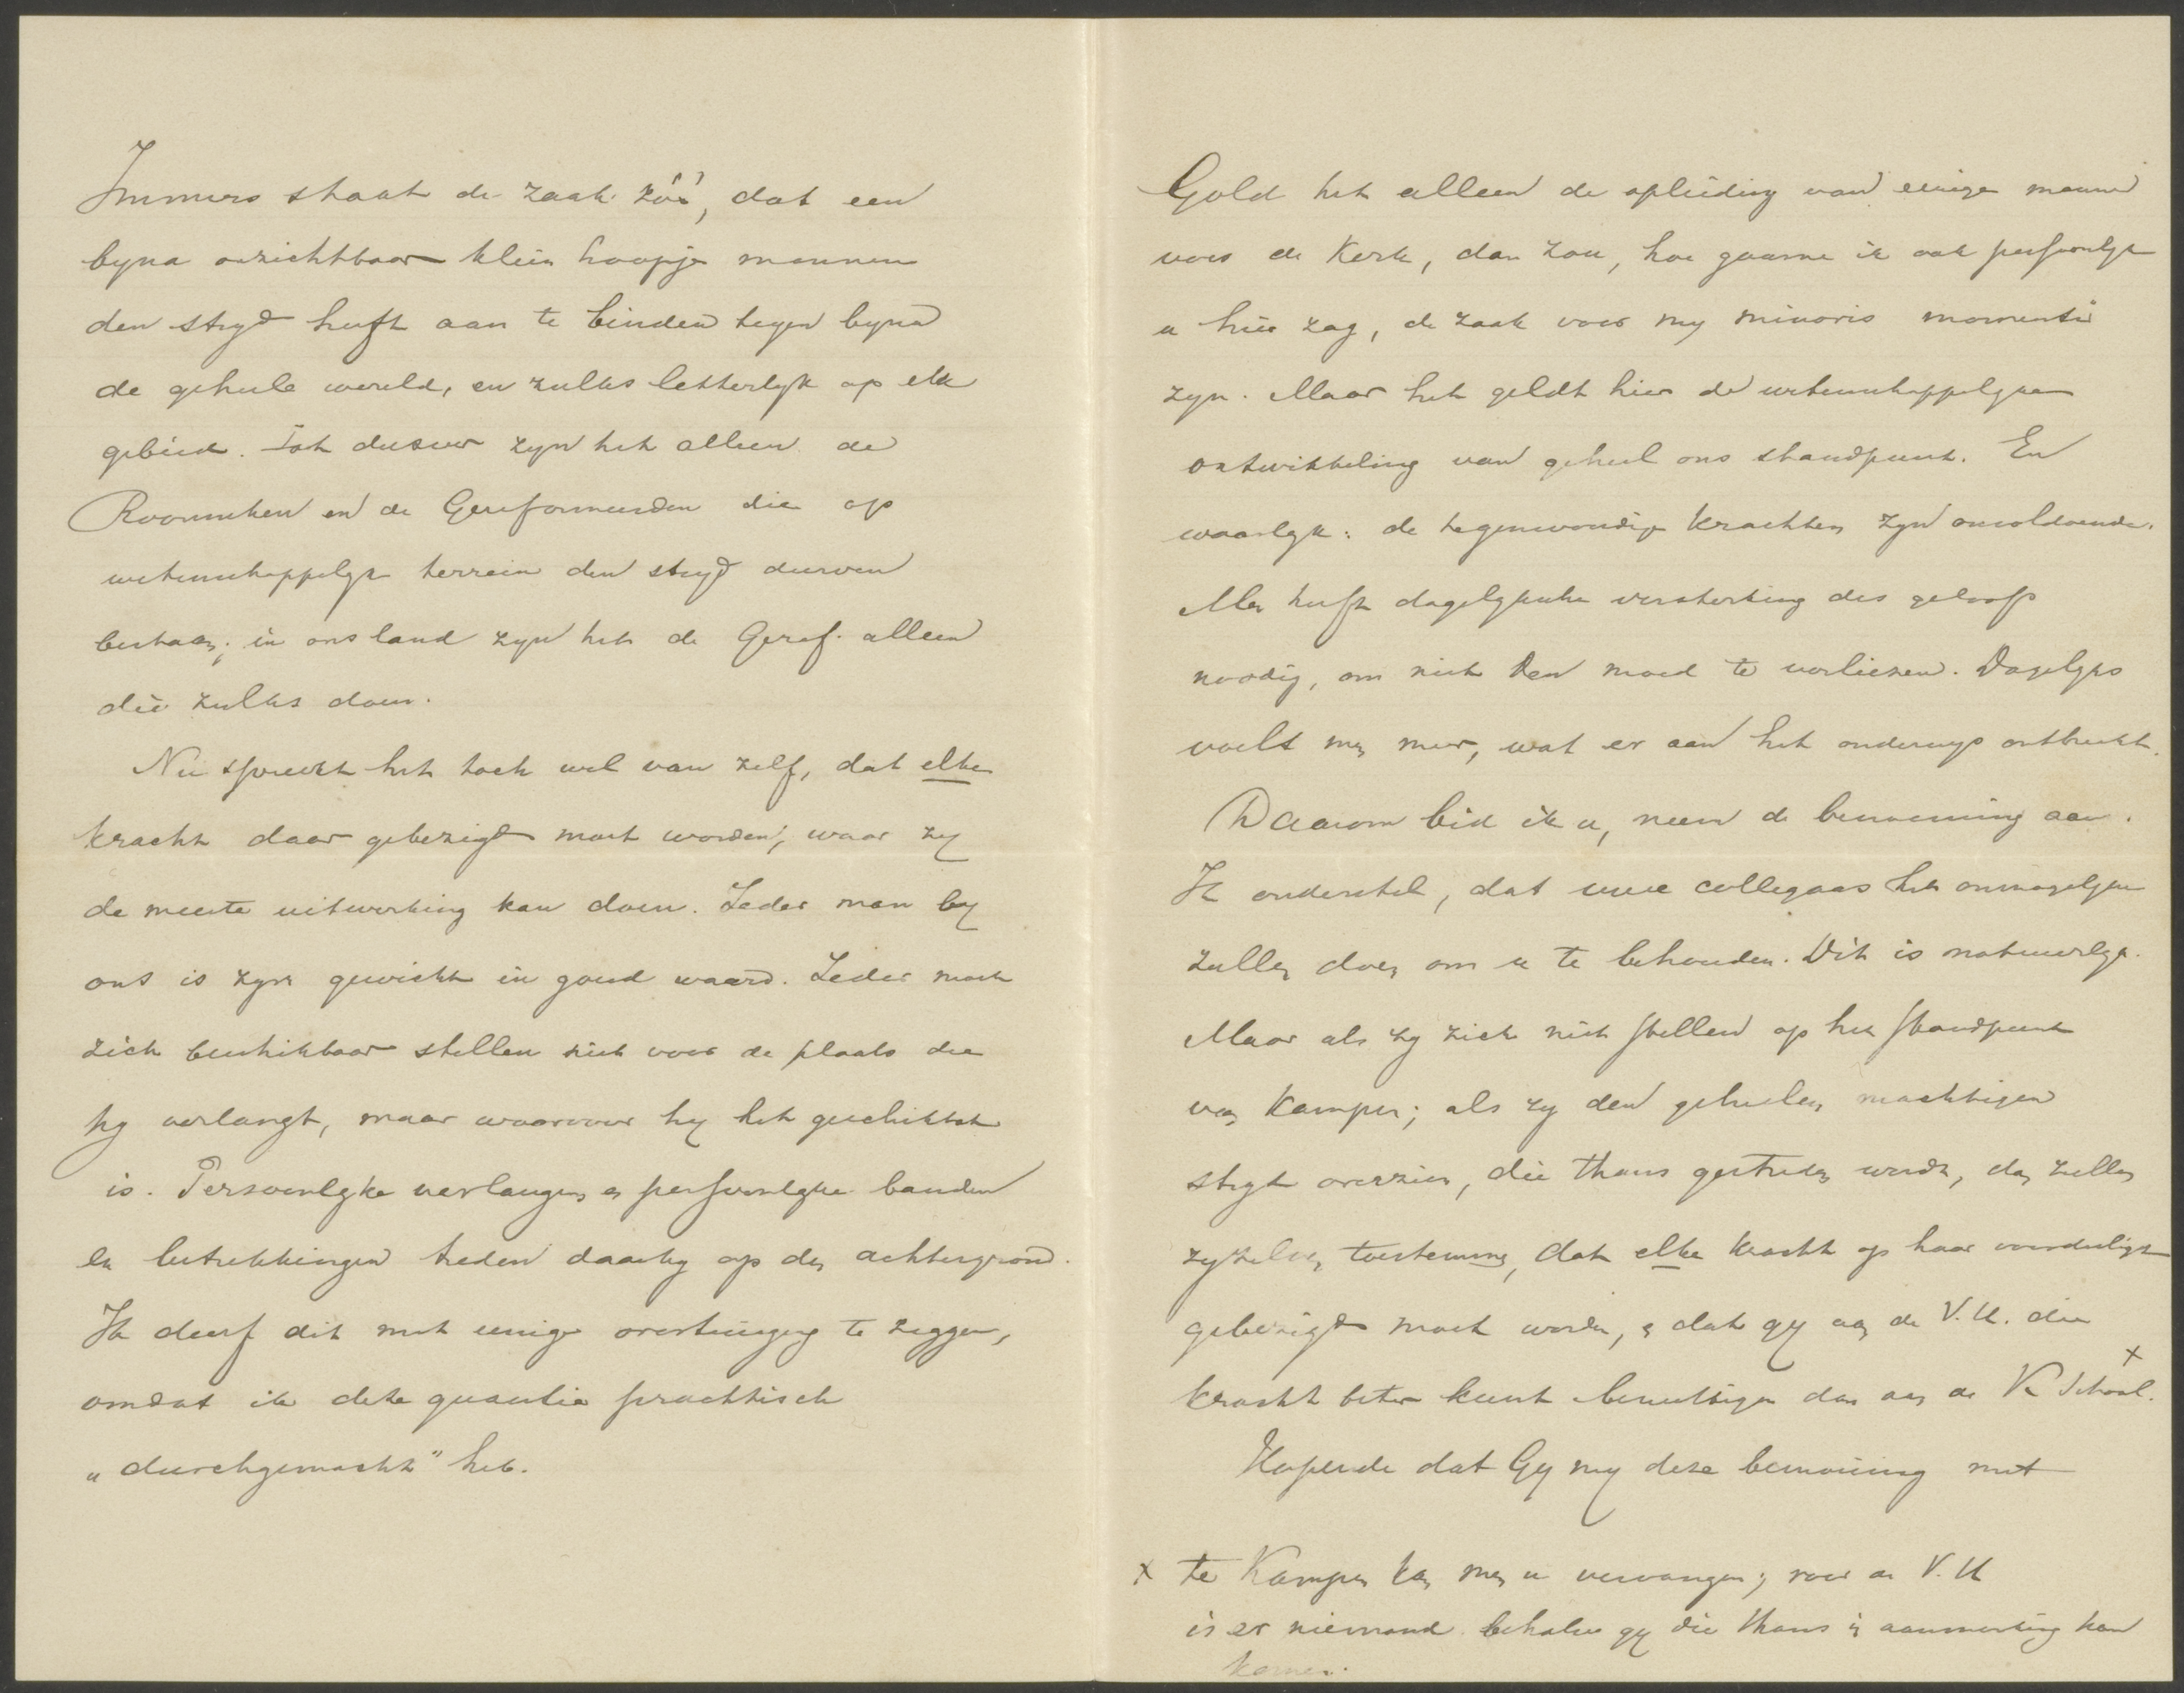 Immers staat de zaak zóó, dat een
byna onzichtbaar klein hoopje mannen
den stryd heeft aan te binden tegen byna
de geheele wereld, en zulks letterlyk op elk
gebied. Tot dusver zyn het alleen de
Roomschen en de Gereformeerden die op
wetenschappelyk terrein den stryd durven
bestaan; in ons land zyn het de Geref. alleen
die zulks doen.
Nu spreekt het toch wel van zelf, dat elke
kracht daar gebezigd moet worden, waar zy
de meeste uitwerking kan doen. Ieder man by
ons is zyn gewicht in goud waard. Ieder moet
zich beschikbaar stellen niet voor de plaats die
hy verlangt, maar waarvoor hy het geschiktst
is. Persoonlyke verlangens en persoonlyke banden
en betrekkingen treden daarby op den achtergrond.
Ik durf dit met eenige overtuiging te zeggen,
omdat ik deze quaestie practisch
„durchgemacht" heb.
Gold het alleen de opleiding van eenige mannen
voor de Kerk, dan zou, hoe gaarne ik ook persoonlyk
u hier zag, de zaak voor my minoris momenti
zyn. Maar het geldt hier de wetenschappelyke
ontwikkeling van geheel ons standpunt. En
waarlyk: de tegenwoordige krachten zyn onvoldoende.
Men heeft dagelyksche versterking des geloofs
noodig, om niet den moed te verliezen. Dagelyks
voelt men meer, wat er aan het onderwys ontbreekt.
Daarom bid ik u, neem de benoeming aan.
Ik onderstel, dat uwe collegaas het onmogelyke
zullen doen om u te behouden. Dit is natuurlyk.
Maar als zy zich niet stellen op het standpunt
van Kampen; als zy den geheelen machtigen
stryd overzien, die thans gestreden wordt, dan zullen
zy zelven toestemmen, dat elke kracht op haar voordeeligst
gebezigd moet worden, en dat gy aan de V.U. die
kracht beter kunt benuttigen dan aan de K School. x
Hopende dat Gy my deze bemoeiing niet
x te Kampen kan men u vervangen; voor de V.U
is er niemand behalve gy die thans in aanmerking kan
komen.